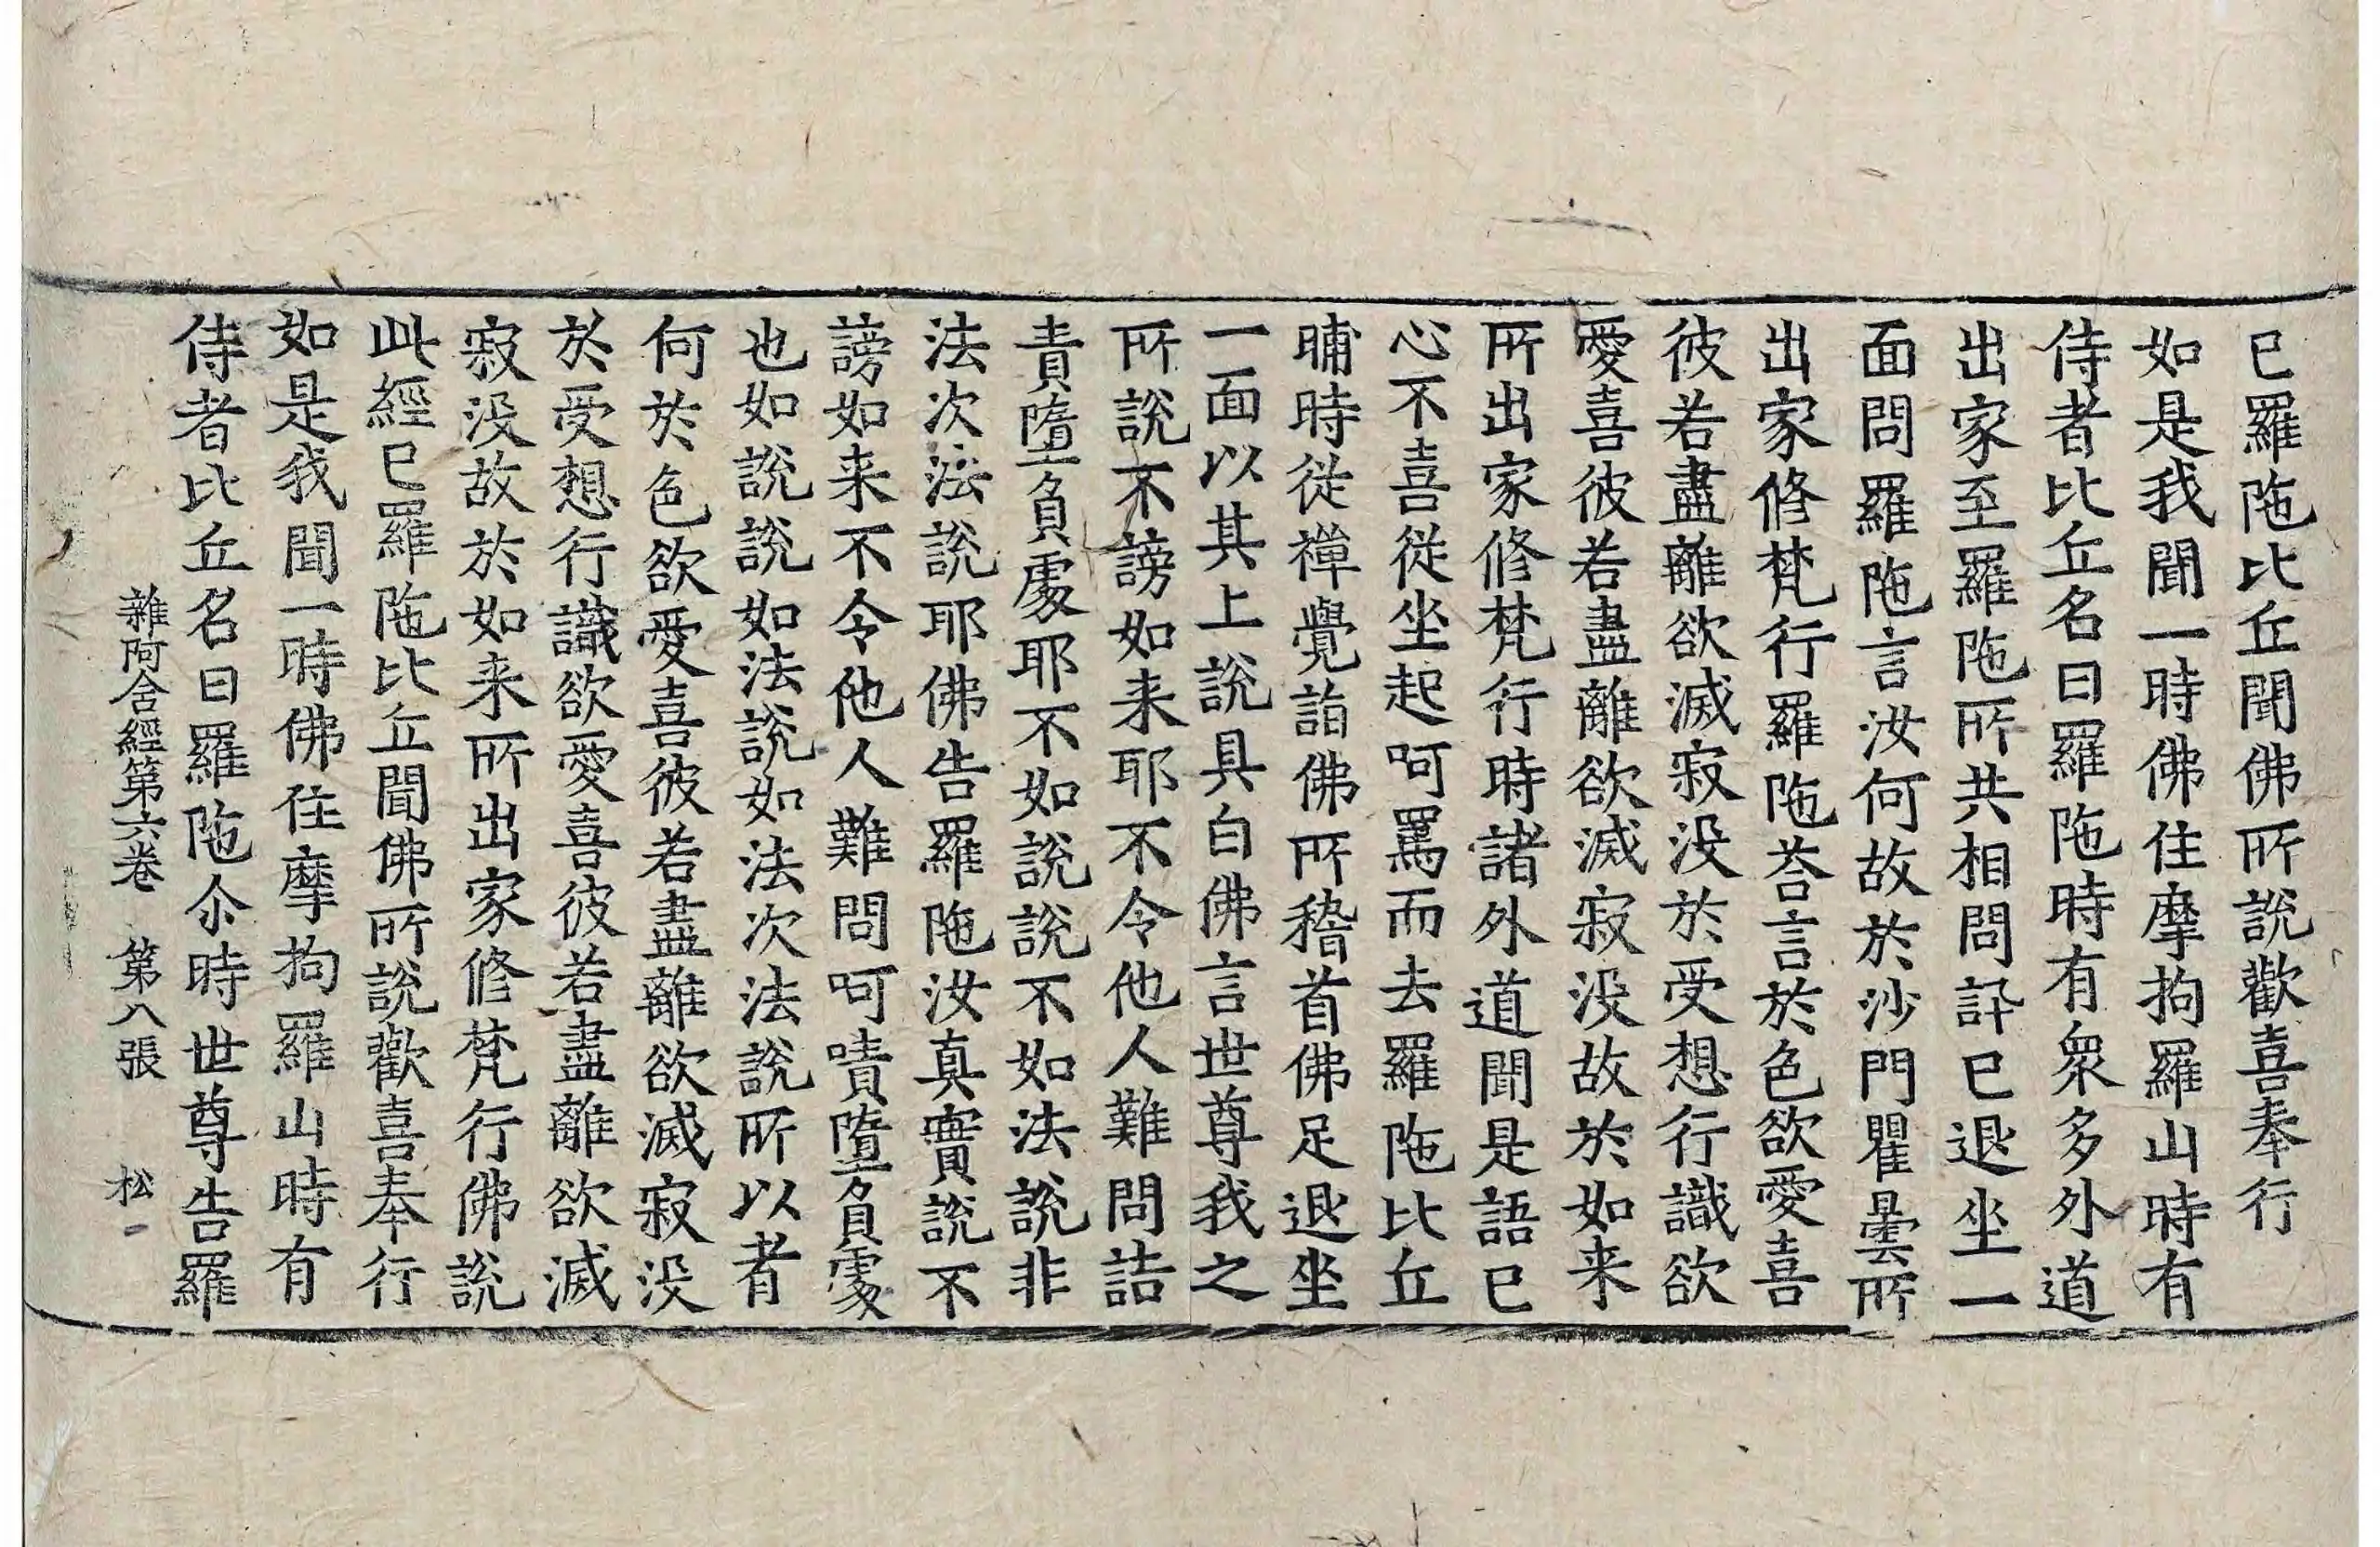 已羅陁比丘聞佛所說歡喜奉行
如是我聞一時佛住摩拘羅山時有
侍者比丘名曰羅陁時有衆多外道
出家至羅陁所共相問訊已退坐一
面問羅陁言汝何故於沙門瞿曇所
出家修梵行羅陁荅言於色欲愛喜
彼若盡離欲滅寂没於受想行識欲
愛喜彼若盡離欲滅寂没故於如来
所出家修梵行時諸外道聞是語已
心不喜從坐起呵罵而去羅陁比丘
晡時從禪覺詣佛所稽首佛足退坐
一面以其上說具白佛言世尊我之
所說不謗如来耶不令他人難問詰
責墮負處耶不如說說不如法說非
法次法說耶佛告羅陁汝真實說不
謗如来不令他人難問呵嘖墮負處
也如說說如法說如法次法說所以者
何於色欲愛喜彼若盡離欲滅寂没
於受想行識欲愛喜彼若盡離欲滅
寂没故於如来所出家修梵行佛說
此經已羅陁比丘聞佛所說歡喜奉行
如是我聞一時佛住摩拘羅山時有
侍者比丘名曰羅陁尒時世尊告羅
雜阿含經第六卷 第八張 松